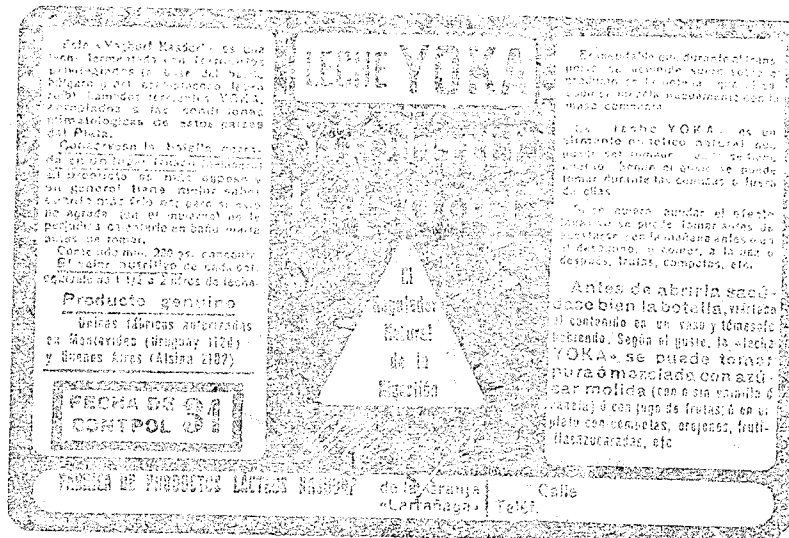 Este «Yoghurt Kasdorf» es una
leche fermentada con fermentos
del Plata.
Consérvese la botella cerra-
da en un lugar
El producto es más espeso y
en general tiene mejor sabor
cuanto más frío esté; pero si esto
no agrada (en el invierno) no le
perjudica calentarlo en baño maría
antes de tomar.
Contenido mín. 220 gs.
El valor nutritivo de cada bot.
equivale a 1 1/2 a 2 litros de leche.
Producto genuino
Únicas fábricas autorizadas
en Montevideo (Uruguay 1126)
y Buenos Aires (Alsina 2182)
FECHA DE
CONTROL 31
LECHE YOKA
El
Regulador
Natural
de la
Digestión
Es inevitable que durante el trans
porte se acumule suero sobre el
producto en la botella
masa compacta.
La leche YOKA» es un
alimento dietético natural que
puede ser tomado
Según el gusto se puede
tomar durante las comidas o fuera
de ellas.
Si se quiere ayudar el efecto
se puede tomar antes de
acostarse, en la mañana antes o en
el desayuno, o comer, a la vez o
después, frutas, compotas, etc.
Antes de abrirla sacú-
dase bien la botella, viértase
el contenido en un vaso y tómeselo
bebiendo. Según el gusto, la «leche
YOKA» se puede tomar
pura ó mezclada con azú-
car molida (con ó sin vainilla ó
canela) ó con jugo de frutas; ó en el
plato con compotas, orejones, fruti-
llas azucaradas, etc
FABRICA DE PRODUCTOS LÁCTEOS KASDORF
de la Granja
«Larrañaga»
Calle
Teléf.